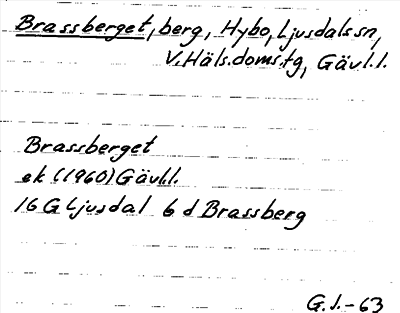 Brassberget, berg, Hybo, Ljusdals sn,
V. Häls. doms. tg, Gävl. l.
Brassberget
ek (1960) Gävll.
16 G Ljusdal 6 d Brassberg
G. J. - 63